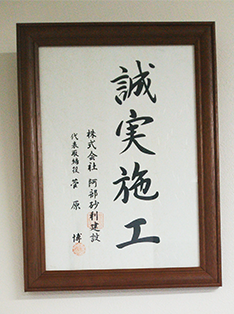 誠実施工
株式会社 阿部砂利建設
代表取締役 菅原 博